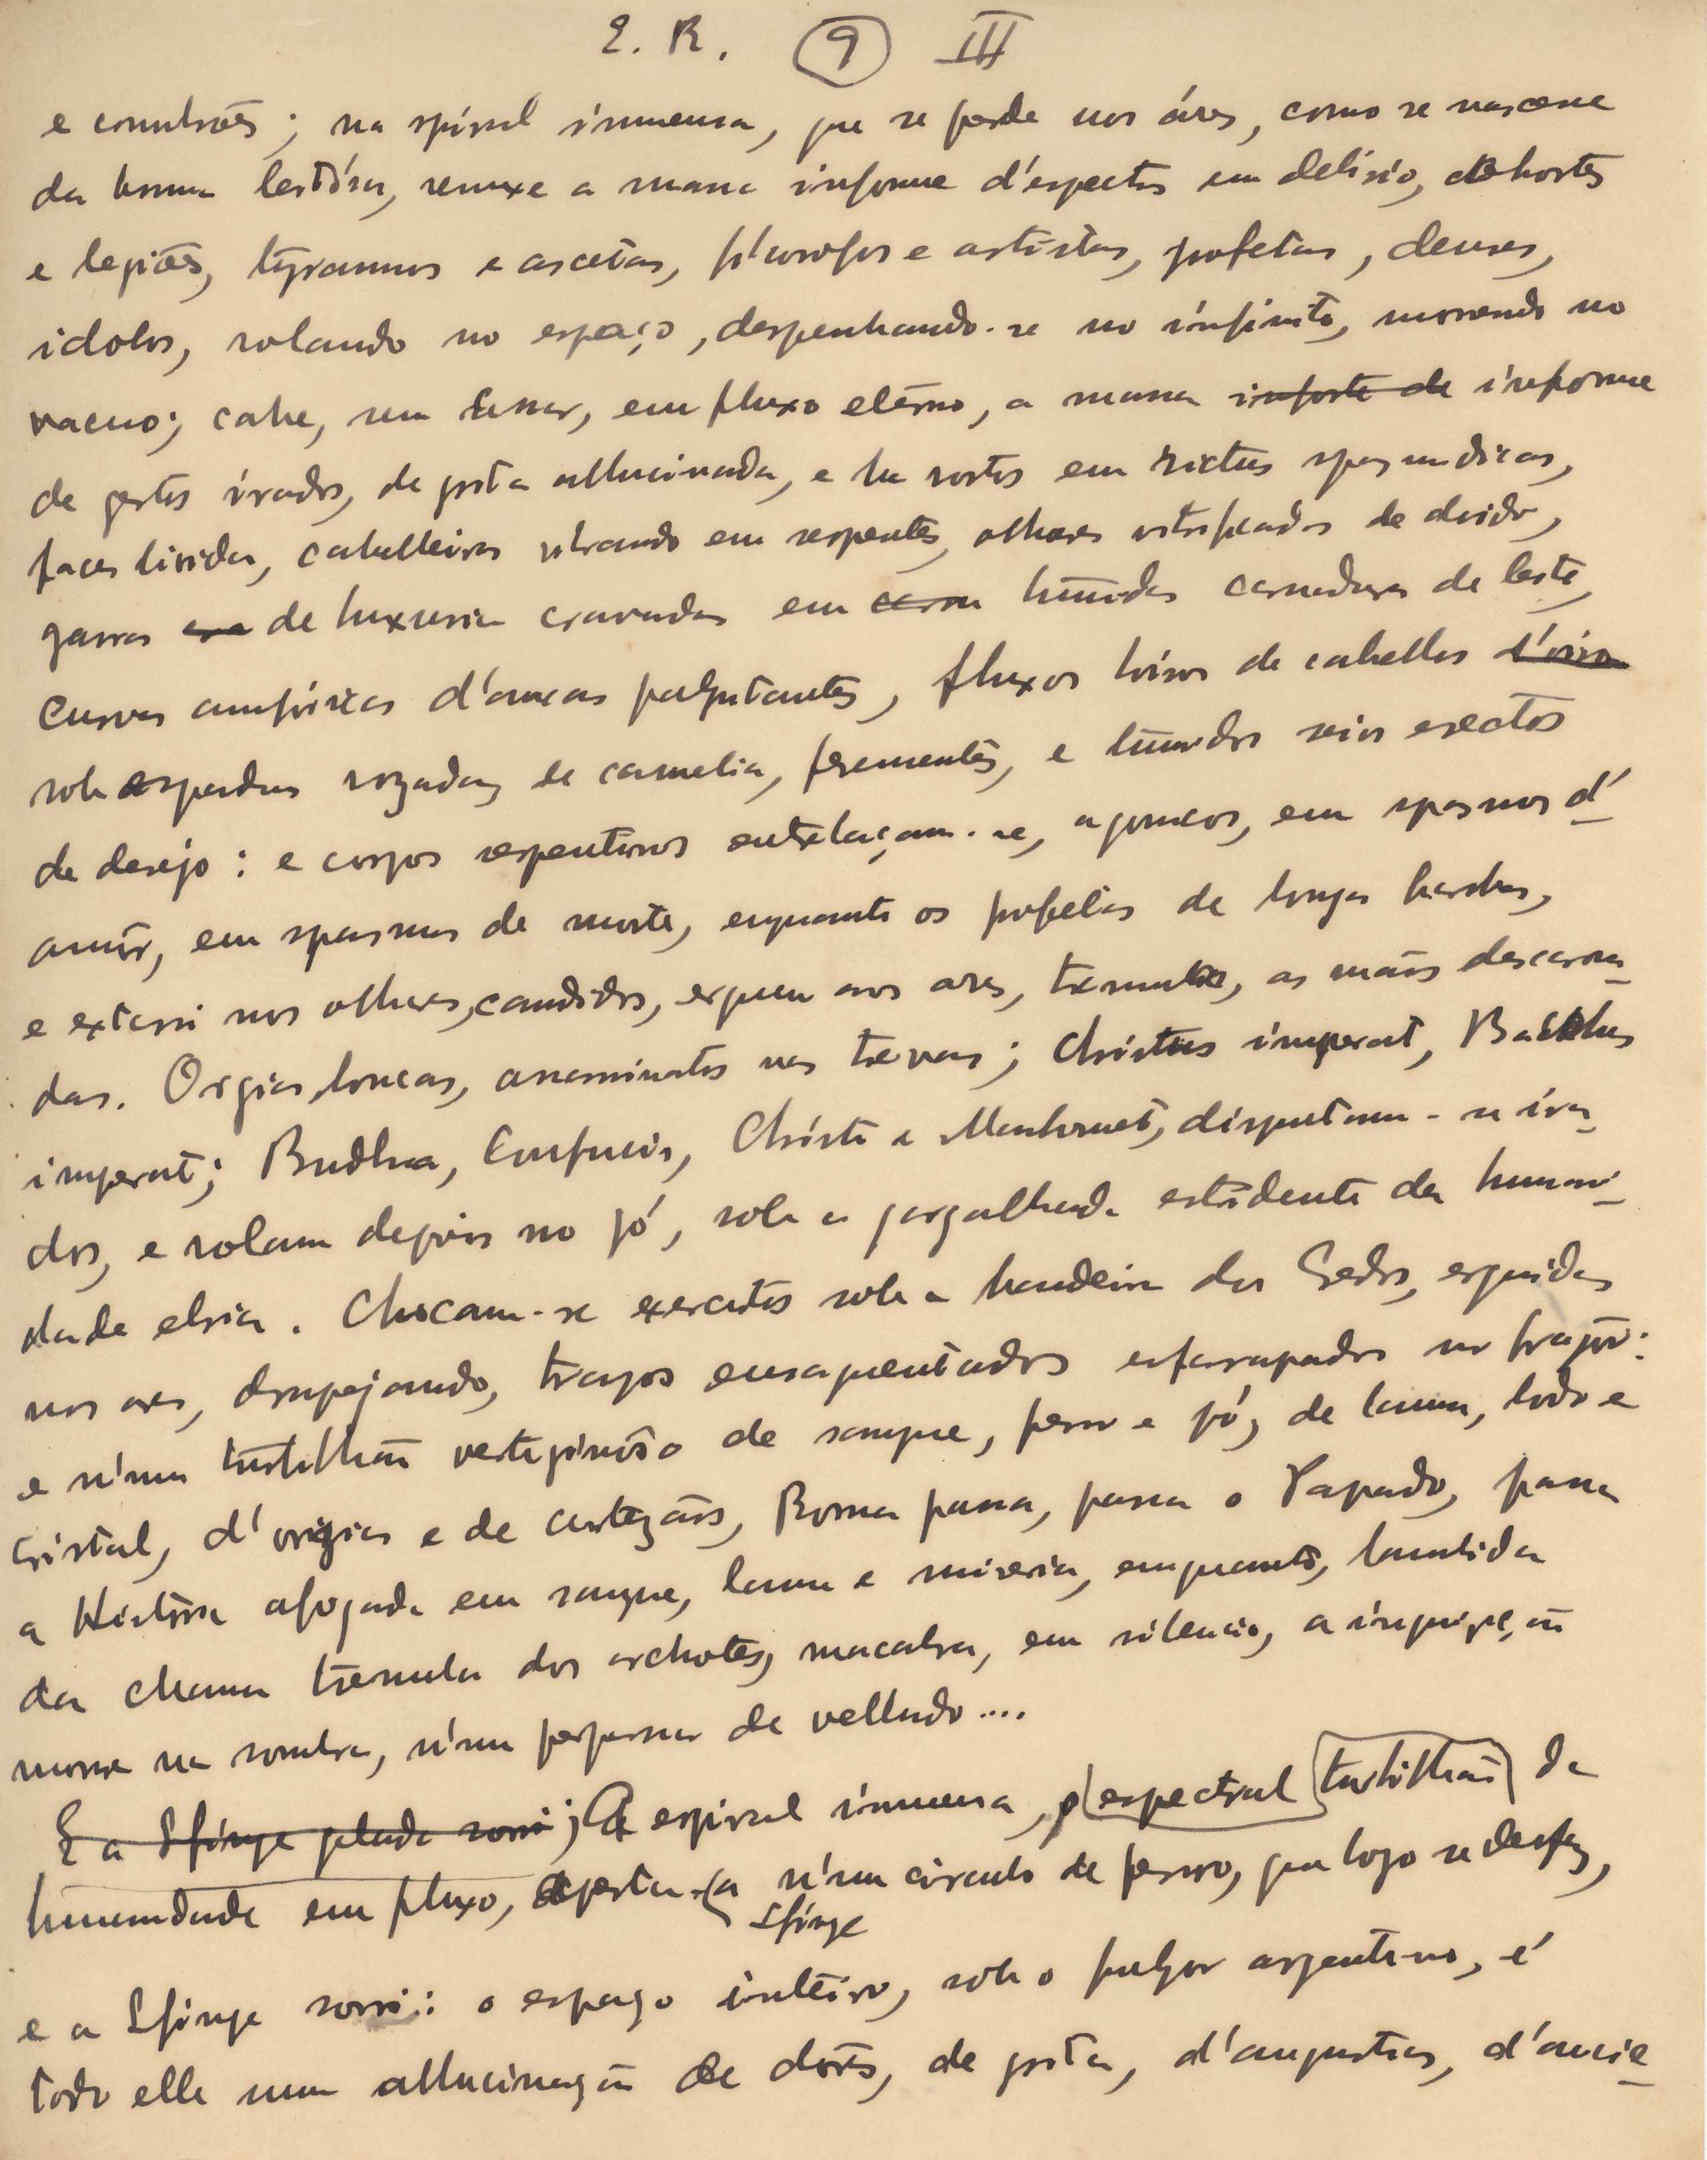 E. R. 9 III
e convulsões; na spiral immensa, que se perde nos áres, como se nascesse
da bruma lectósa, remexe a massa informe d'espectros em delirio, cohortes
e legiões, tyrannos e ascetas, filosofos e artistas, profetas, deuses,
idolos, rolando no espaço, despenhando-se no infinito, morrendo no
vacuo; cahe, sem cessar, em fluxo eterno, a massa inforte de informe
de gestos irados, de grita allucinada, e ha rostos em rictus spasmodicos,
faces lividas, cabelleiras vibrando em serpentes, olhares vitrificados de doido,
garras de luxuria cravadas em húmidas carnaduras de leite,
curvas amfóricas d'ancas palpitantes, fluxos loiros de cabellos
sob espaduas rozadas de camelia, frementes, e túmidos seios erectos
de desejo: e corpos serpentinos entrelaçam-se, agonicos, em spasmos d'
amôr, em spasmos de morte, enquanto os profetas de longas barbas,
e extasi nos olhares, candidos, erguem aos ares, tremulas, as mãos descarna-
das. Orgias loucas, assassinatos nas trevas; Christus imperat, Bacchus
imperat; Budha, Confucio, Christo e Mahomet, disputam-se ira-
dos, e rolam depois no pó, sob a gargalhada estridente da humani-
dade ebria. Chocam-se exercitos sob a bandeira dos Credos, erguidas
nos ares, drapejando, trapos ensaguentados esfarrapados no fragôr:
e n'um turbilhão vertiginoso de sangue, ferro e pó, de lama, lodo e
cristal, d'orgias e de cortezãs, Roma passa, passa o Papado, passa
a História afogada em sangue, lama e miseria, emquanto, lambida
da chama tremula dos archotes, macabra, em silencio, a inquisição
morre na sombra, n'um perpassar de velludo....
E a Sfinge gelada sorri; A espiral immensa, espectral turbilhão da
humanidade em fluxo, aperta-a n'um circulo de ferro, que logo se desfaz,
Sfinge
e a Sfinge sorri: o espaço inteiro, sob o fulgor argentino, é
todo elle uma allucinação de dôres, de grita, d'angustias, d'ancie-